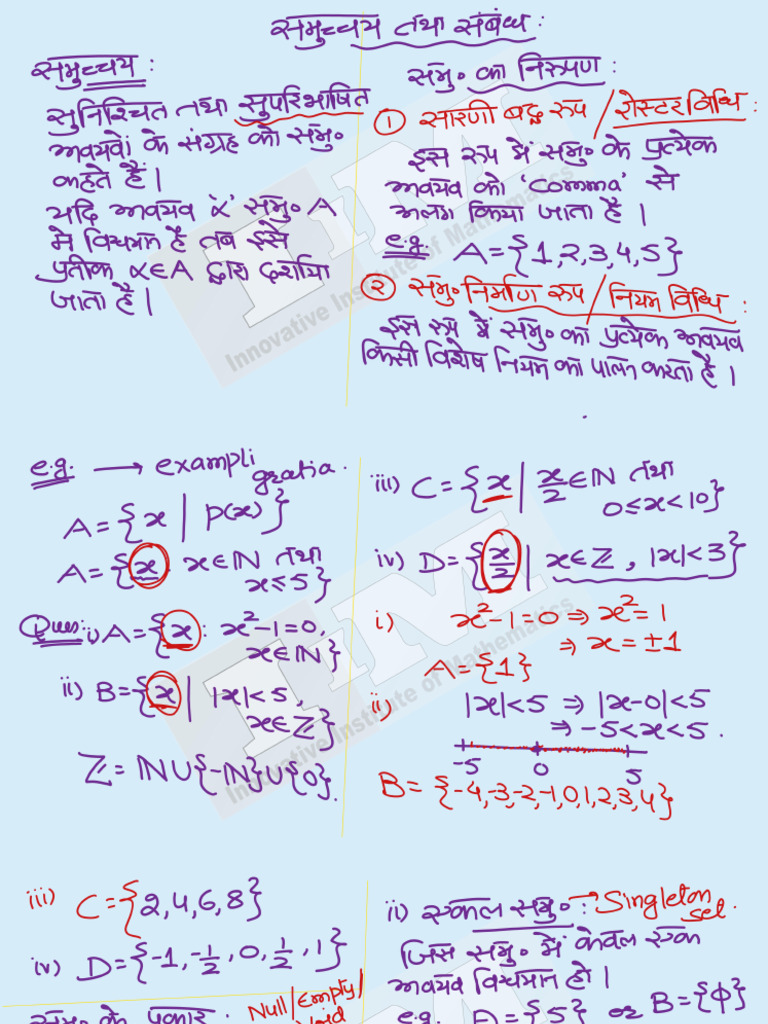 समुच्चय तथा संबंध :
समुच्चय :
सुनिश्चित तथा सुपरिभाषित
अवयवों के संग्रह को समु०
कहते हैं।
यदि अवयव 'α' समु० A
में विद्यमान है तब इसे
प्रतीक α∈A द्वारा दर्शाया
जाता है।
समु० का निरूपण :
① सारणी बद्ध रूप / रोस्टर विधि :
इस रूप में समु० के प्रत्येक
अवयव को 'comma' से
अलग किया जाता है।
e.g. A={1,2,3,4,5}
② समु० निर्माण रूप / नियम विधि :
इस रूप में समु० का प्रत्येक अवयव
किसी विशेष नियम का पालन करता है।
e.g. → exampli
gratia.
A={x | P(x)}
A={x x∈ℕ तथा
x≤5}
Ques: i) A={x : x²-1=0,
x∈ℕ}
ii) B={x | |x|<5,
x∈ℤ}
ℤ=ℕ∪{-ℕ}∪{0}.
iii) C={x | x/2∈ℕ तथा
0≤x<10}
iv) D={x/2 | x∈ℤ, |x|<3}
i) x²-1=0 ⇒ x²=1
⇒ x=±1
A={1}
ii) |x|<5 ⇒ |x-0|<5
⇒ -5<x<5.
-5 0 5
B={-4,-3,-2,-1,0,1,2,3,4}
iii) C={2,4,6,8}
iv) D={-1,-1/2,0,1/2,1}
समु० के प्रकार : Null/Empty/
Void
ii) एकल समु० : → Singleton
set.
जिस समु० में केवल एक
अवयव विद्यमान हो।
e.g. A={5} or B={ϕ}
IIM
Innovative Institute of Mathematics
IIM
Innovative Institute of Mathematics